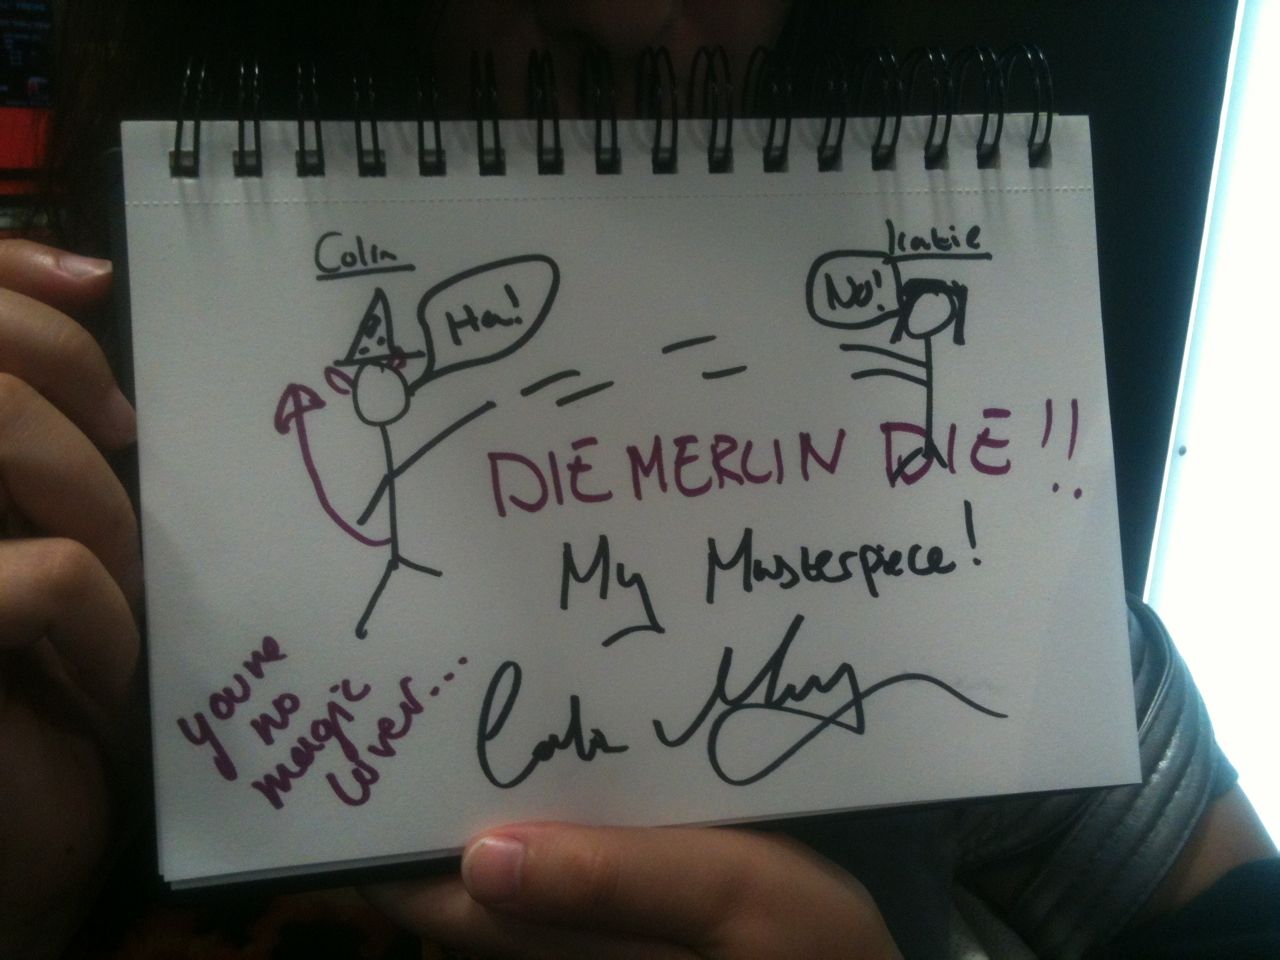 Colin
Katie
Ha!
No!
DIE MERLIN DIE!!
My Masterpiece!
you're
no
magic
Colin